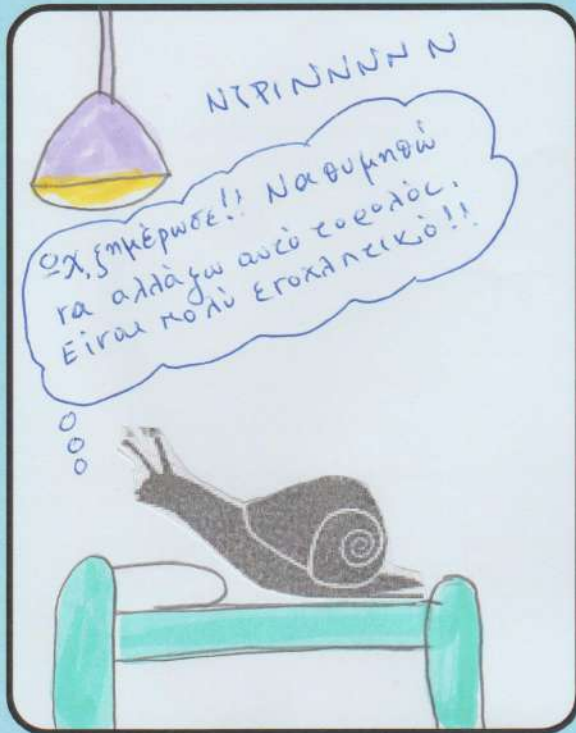 ΝΤΡΙΝΝΝΝ Ν
Ωχ, ξημέρωσε!! Να θυμηθώ
να αλλάξω αυτό το ρολόι.
Είναι πολύ ενοχλητικό!!